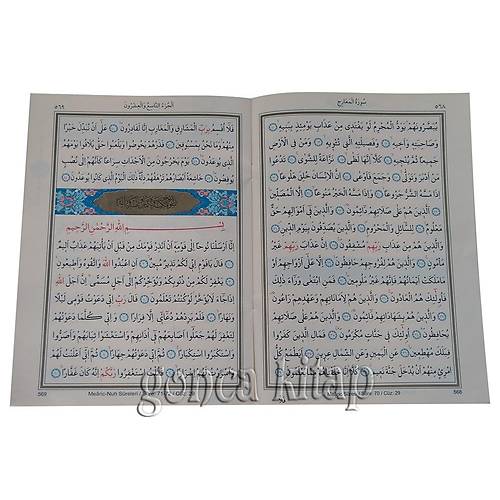 سُورَةُ الْمَعَارِجِ ٥٦٨
يُبَصَّرُونَهُمْ يَوَدُّ الْمُجْرِمُ لَوْ يَفْتَدِي مِنْ عَذَابِ يَوْمِئِذٍ بِبَنِيهِ
وَصَاحِبَتِهِ وَأَخِيهِ وَفَصِيلَتِهِ الَّتِي تُؤْوِيهِ وَمَنْ فِي الْأَرْضِ
جَمِيعًا ثُمَّ يُنْجِيهِ كَلَّا إِنَّهَا لَظَى نَزَّاعَةً لِلشَّوَى تَدْعُو
مَنْ أَدْبَرَ وَتَوَلَّى وَجَمَعَ فَأَوْعَى إِنَّ الْإِنْسَانَ خُلِقَ هَلُوعًا
إِذَا مَسَّهُ الشَّرُّ جَزُوعًا وَإِذَا مَسَّهُ الْخَيْرُ مَنُوعًا إِلَّا الْمُصَلِّينَ
الَّذِينَ هُمْ عَلَى صَلَاتِهِمْ دَائِمُونَ وَالَّذِينَ فِي أَمْوَالِهِمْ حَقٌّ
مَعْلُومٌ لِلسَّائِلِ وَالْمَحْرُومِ وَالَّذِينَ يُصَدِّقُونَ بِيَوْمِ
الدِّينِ وَالَّذِينَ هُمْ مِنْ عَذَابِ رَبِّهِمْ مُشْفِقُونَ إِنَّ عَذَابَ رَبِّهِمْ غَيْرُ
مَأْمُونٍ وَالَّذِينَ هُمْ لِفُرُوجِهِمْ حَافِظُونَ إِلَّا عَلَى أَزْوَاجِهِمْ أَوْ
مَا مَلَكَتْ أَيْمَانُهُمْ فَإِنَّهُمْ غَيْرُ مَلُومِينَ فَمَنِ ابْتَغَى وَرَاءَ ذَلِكَ
فَأُولَئِكَ هُمُ الْعَادُونَ وَالَّذِينَ هُمْ لِأَمَانَاتِهِمْ وَعَهْدِهِمْ رَاعُونَ
وَالَّذِينَ هُمْ بِشَهَادَاتِهِمْ قَائِمُونَ وَالَّذِينَ هُمْ عَلَى صَلَاتِهِمْ
يُحَافِظُونَ أُولَئِكَ فِي جَنَّاتٍ مُكْرَمُونَ فَمَالِ الَّذِينَ كَفَرُوا
قِبَلَكَ مُهْطِعِينَ عَنِ الْيَمِينِ وَعَنِ الشِّمَالِ عِزِينَ أَيَطْمَعُ كُلُّ
امْرِئٍ مِنْهُمْ أَنْ يُدْخَلَ جَنَّةَ نَعِيمٍ كَلَّا إِنَّا خَلَقْنَاهُمْ مِمَّا يَعْلَمُونَ
Meâric Sûresi / Sûre: 70 / Cüz: 29 568
الْجُزْءُ التَّاسِعُ وَالْعِشْرُونَ ٥٦٩
فَلَا أُقْسِمُ بِرَبِّ الْمَشَارِقِ وَالْمَغَارِبِ إِنَّا لَقَادِرُونَ عَلَى أَنْ نُبَدِّلَ خَيْرًا
مِنْهُمْ وَمَا نَحْنُ بِمَسْبُوقِينَ فَذَرْهُمْ يَخُوضُوا وَيَلْعَبُوا حَتَّى يُلَاقُوا يَوْمَهُمُ
الَّذِي يُوعَدُونَ يَوْمَ يَخْرُجُونَ مِنَ الْأَجْدَاثِ سِرَاعًا كَأَنَّهُمْ إِلَى نُصُبٍ
يُوفِضُونَ خَاشِعَةً أَبْصَارُهُمْ تَرْهَقُهُمْ ذِلَّةٌ ذَلِكَ الْيَوْمُ الَّذِي كَانُوا يُوعَدُونَ
بِسْمِ اللَّهِ الرَّحْمَنِ الرَّحِيمِ
إِنَّا أَرْسَلْنَا نُوحًا إِلَى قَوْمِهِ أَنْ أَنْذِرْ قَوْمَكَ مِنْ قَبْلِ أَنْ يَأْتِيَهُمْ عَذَابٌ أَلِيمٌ
قَالَ يَا قَوْمِ إِنِّي لَكُمْ نَذِيرٌ مُبِينٌ أَنِ اعْبُدُوا اللَّهَ وَاتَّقُوهُ وَأَطِيعُونِ
يَغْفِرْ لَكُمْ مِنْ ذُنُوبِكُمْ وَيُؤَخِّرْكُمْ إِلَى أَجَلٍ مُسَمًّى إِنَّ أَجَلَ اللَّهِ
إِذَا جَاءَ لَا يُؤَخَّرُ لَوْ كُنْتُمْ تَعْلَمُونَ قَالَ رَبِّ إِنِّي دَعَوْتُ قَوْمِي لَيْلًا
وَنَهَارًا فَلَمْ يَزِدْهُمْ دُعَائِي إِلَّا فِرَارًا وَإِنِّي كُلَّمَا دَعَوْتُهُمْ
لِتَغْفِرَ لَهُمْ جَعَلُوا أَصَابِعَهُمْ فِي آذَانِهِمْ وَاسْتَغْشَوْا ثِيَابَهُمْ وَأَصَرُّوا
وَاسْتَكْبَرُوا اسْتِكْبَارًا ثُمَّ إِنِّي دَعَوْتُهُمْ جِهَارًا ثُمَّ إِنِّي أَعْلَنْتُ لَهُمْ
وَأَسْرَرْتُ لَهُمْ إِسْرَارًا فَقُلْتُ اسْتَغْفِرُوا رَبَّكُمْ إِنَّهُ كَانَ غَفَّارًا
569 Meâric-Nuh Sûreleri / Sûre: 71-72 / Cüz: 29
gonca kitap